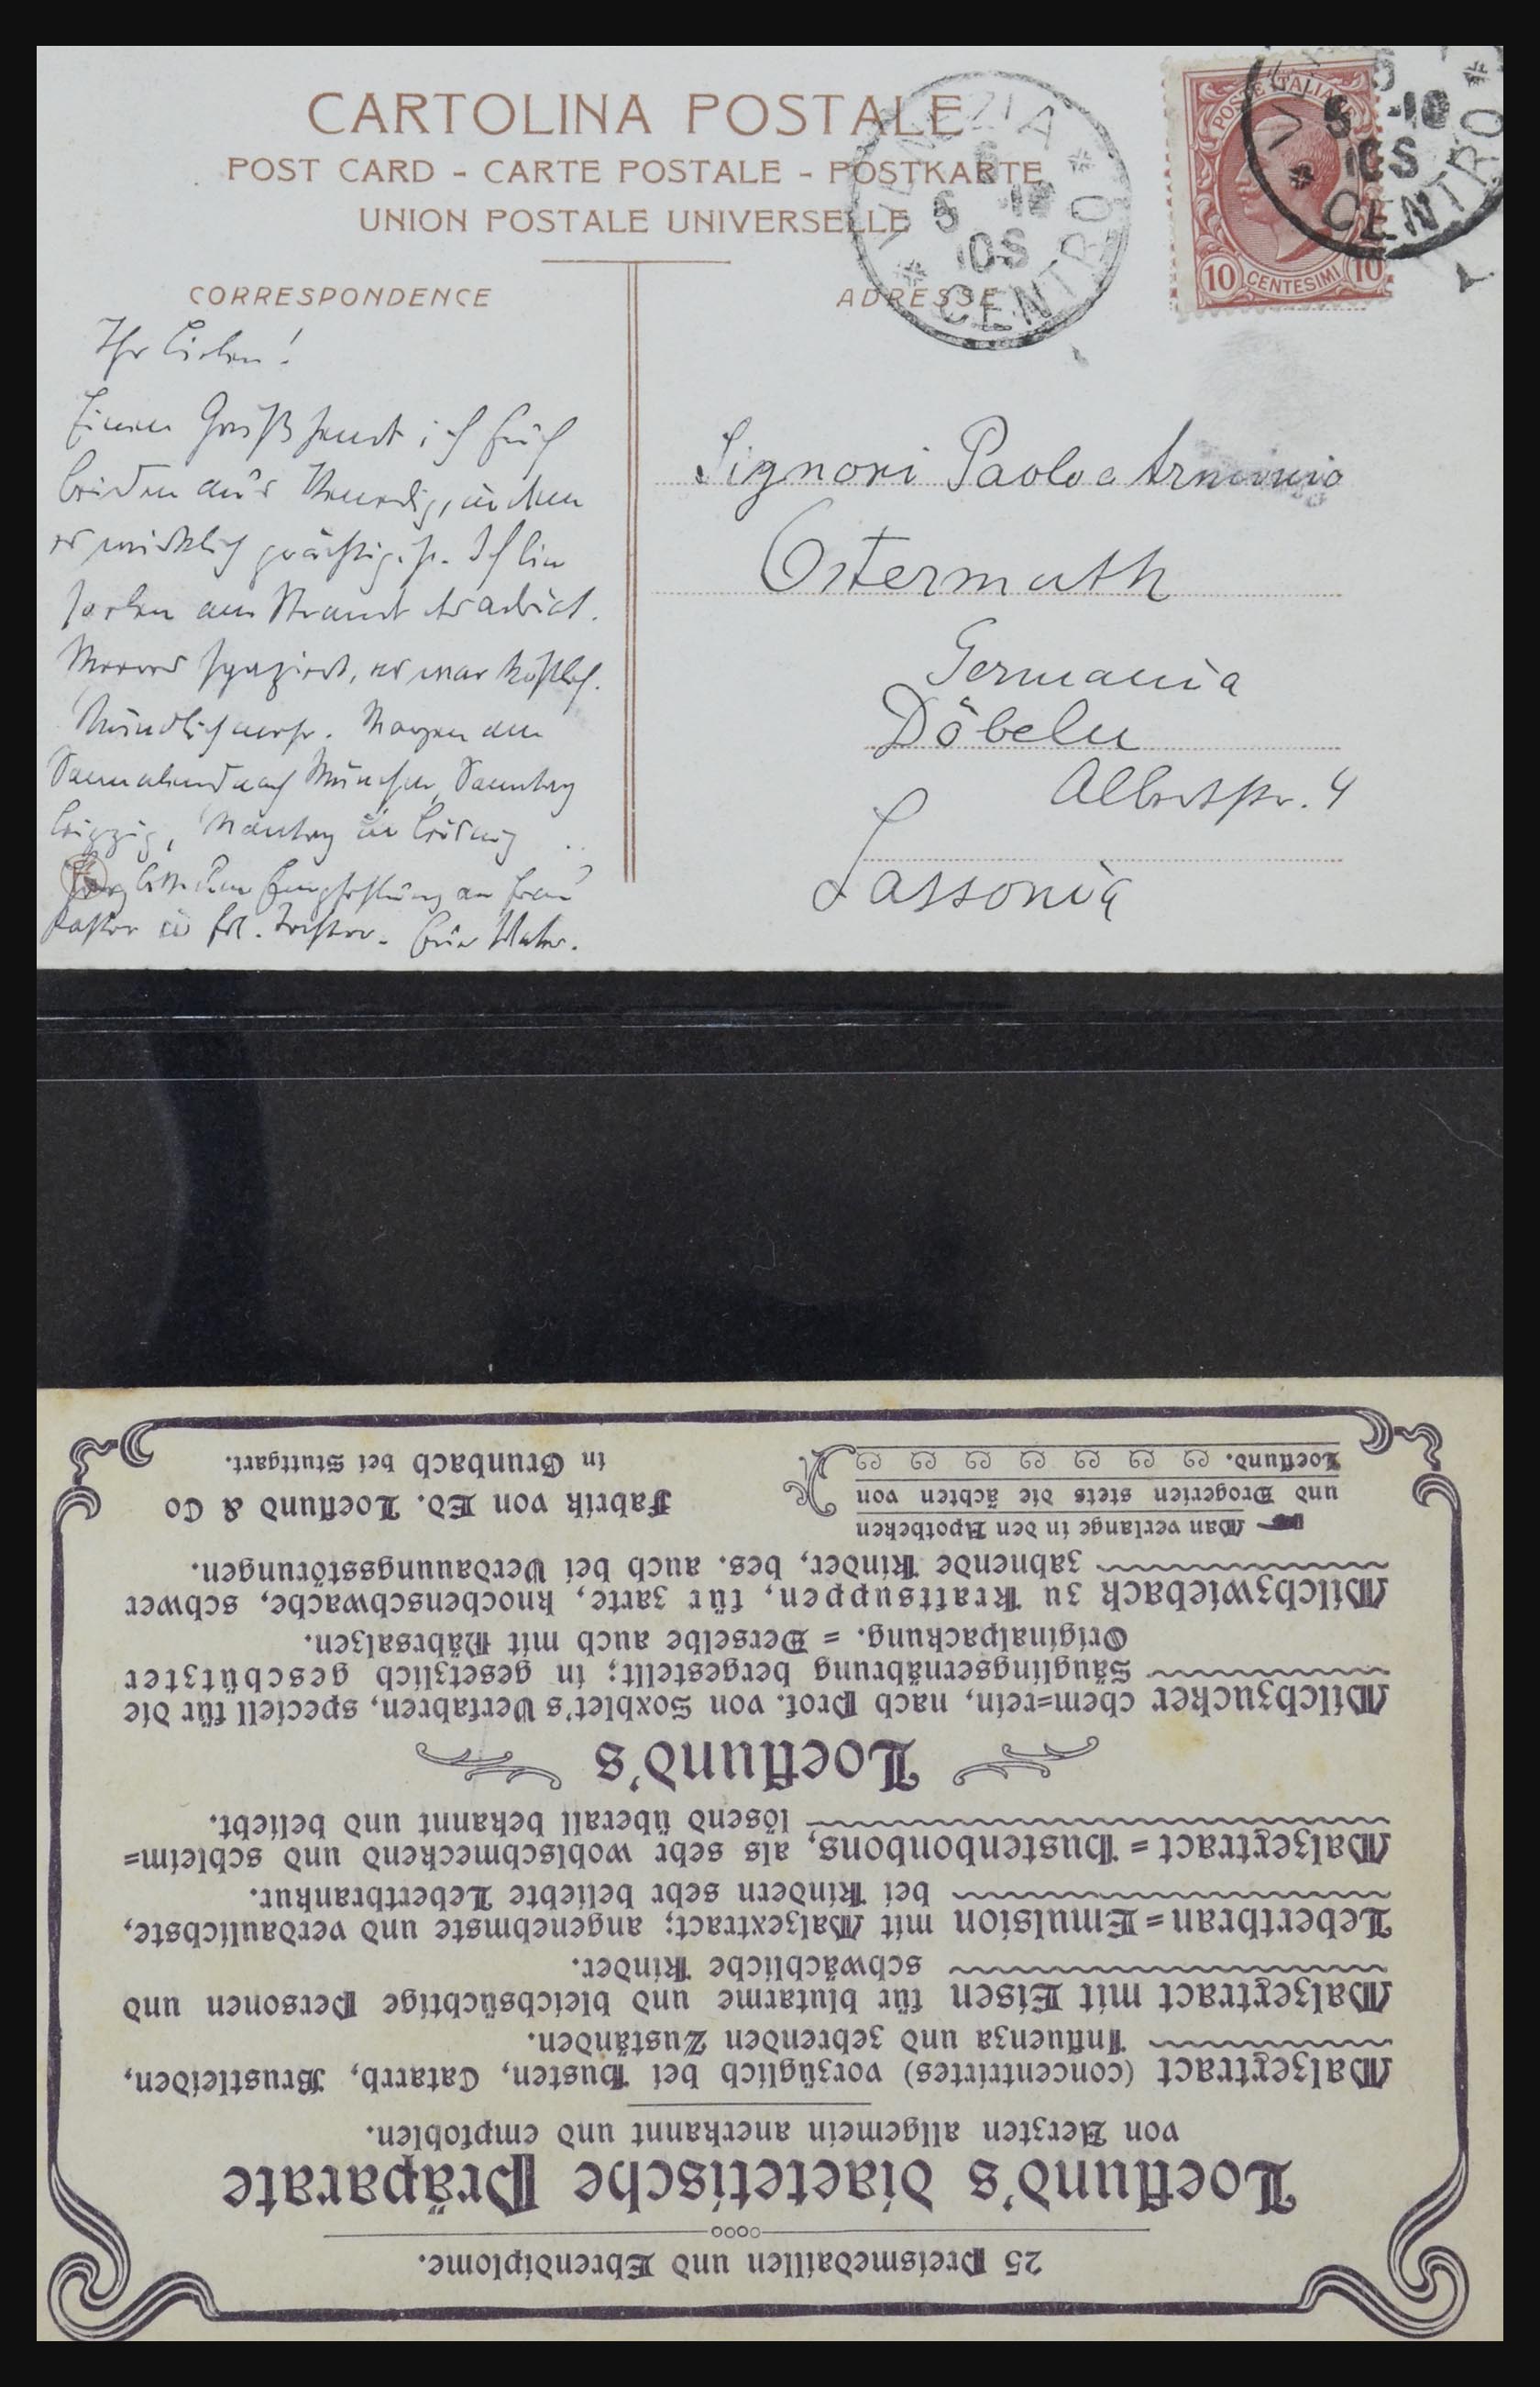 CARTOLINA POSTALE
POST CARD - CARTE POSTALE - POSTKARTE
UNION POSTALE UNIVERSELLE
VENEZIA
CENTRO
POSTE ITALIANE
10 CENTESIMI 10
CENTRO
CORRESPONDENCE
Ihr Lieben!
Einen Gruß sendet ich Euch
beiden aus Venedig, in dem
es wirklich prächtig ist. Ich bin
soeben am Strand des adriat.
Meeres spaziert, es war köstlich.
Mündlich mehr. Morgen
Sonnabend nach München, Sonntag
Leipzig, Montag in
Empfehlung an Frau
Pastor u. Frl. Tochter. Euer
ADRESSE
Signori Paolo e Arminio
Ostermuth
Germania
Döbeln
Albertstr. 4
Sassonia
25 Preismedaillen und Ehrendiplome.
Loeflund's diaetetische Präparate
von Aerzten allgemein anerkannt und empfohlen.
Malzextract (concentrirtes) vorzüglich bei Husten, Catarrh, Brustleiden,
Influenza und zehrenden Zuständen.
Malzextract mit Eisen für blutarme und bleichsüchtige Personen und
schwächliche Kinder.
Leberthran=Emulsion mit Malzextract; angenehmste und verdaulichste,
bei Kindern sehr beliebte Leberthrankur.
Malzextract=Hustenbonbons, als sehr wohlschmeckend und schleim=
lösend überall bekannt und beliebt.
Loeflund's
Milchzucker chem=rein, nach Prof. von Soxhlet's Verfahren, speciell für die
Säuglingsernährung hergestellt; in gesetzlich geschützter
Originalpackung. = Derselbe auch mit Nährsalzen.
Milchzwieback zu Kraftsuppen, für zarte, knochenschwache, schwer
zahnende Kinder, bes. auch bei Verdauungsstörungen.
Man verlange in den Apotheken
und Drogerien stets die ächten von
Loeflund.
Fabrik von Ed. Loeflund & Co
in Grunbach bei Stuttgart.